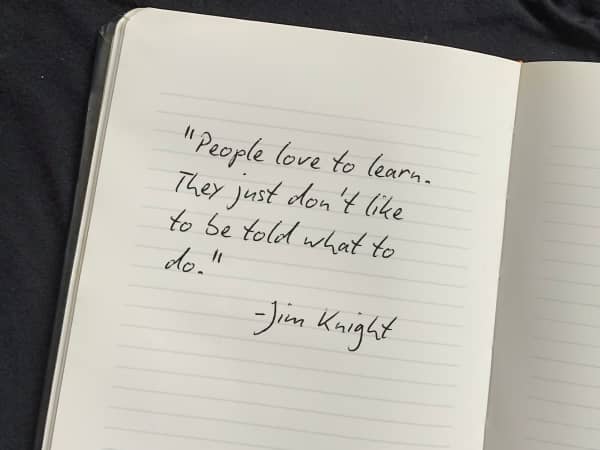 "People love to learn.
They just don't like
to be told what to
do."
-Jim Knight